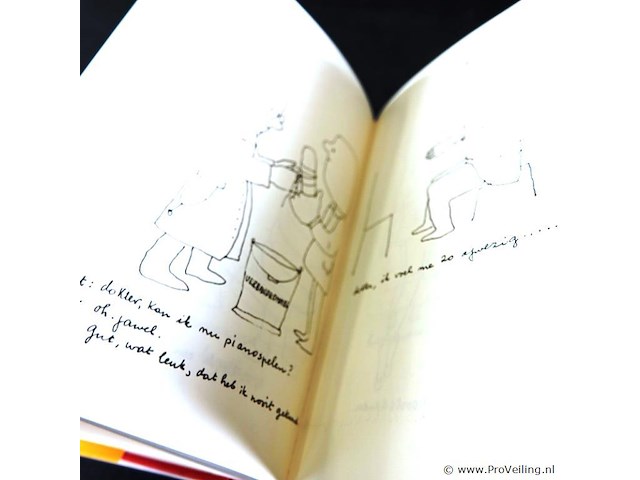 t: dokter, kan ik nu pianospelen?
. oh. jawel.
gut, wat leuk, dat heb ik nooit gekund
dokter, ik voel me zo afwezig.....
VERBANDGAAS
© www.ProVeiling.nl